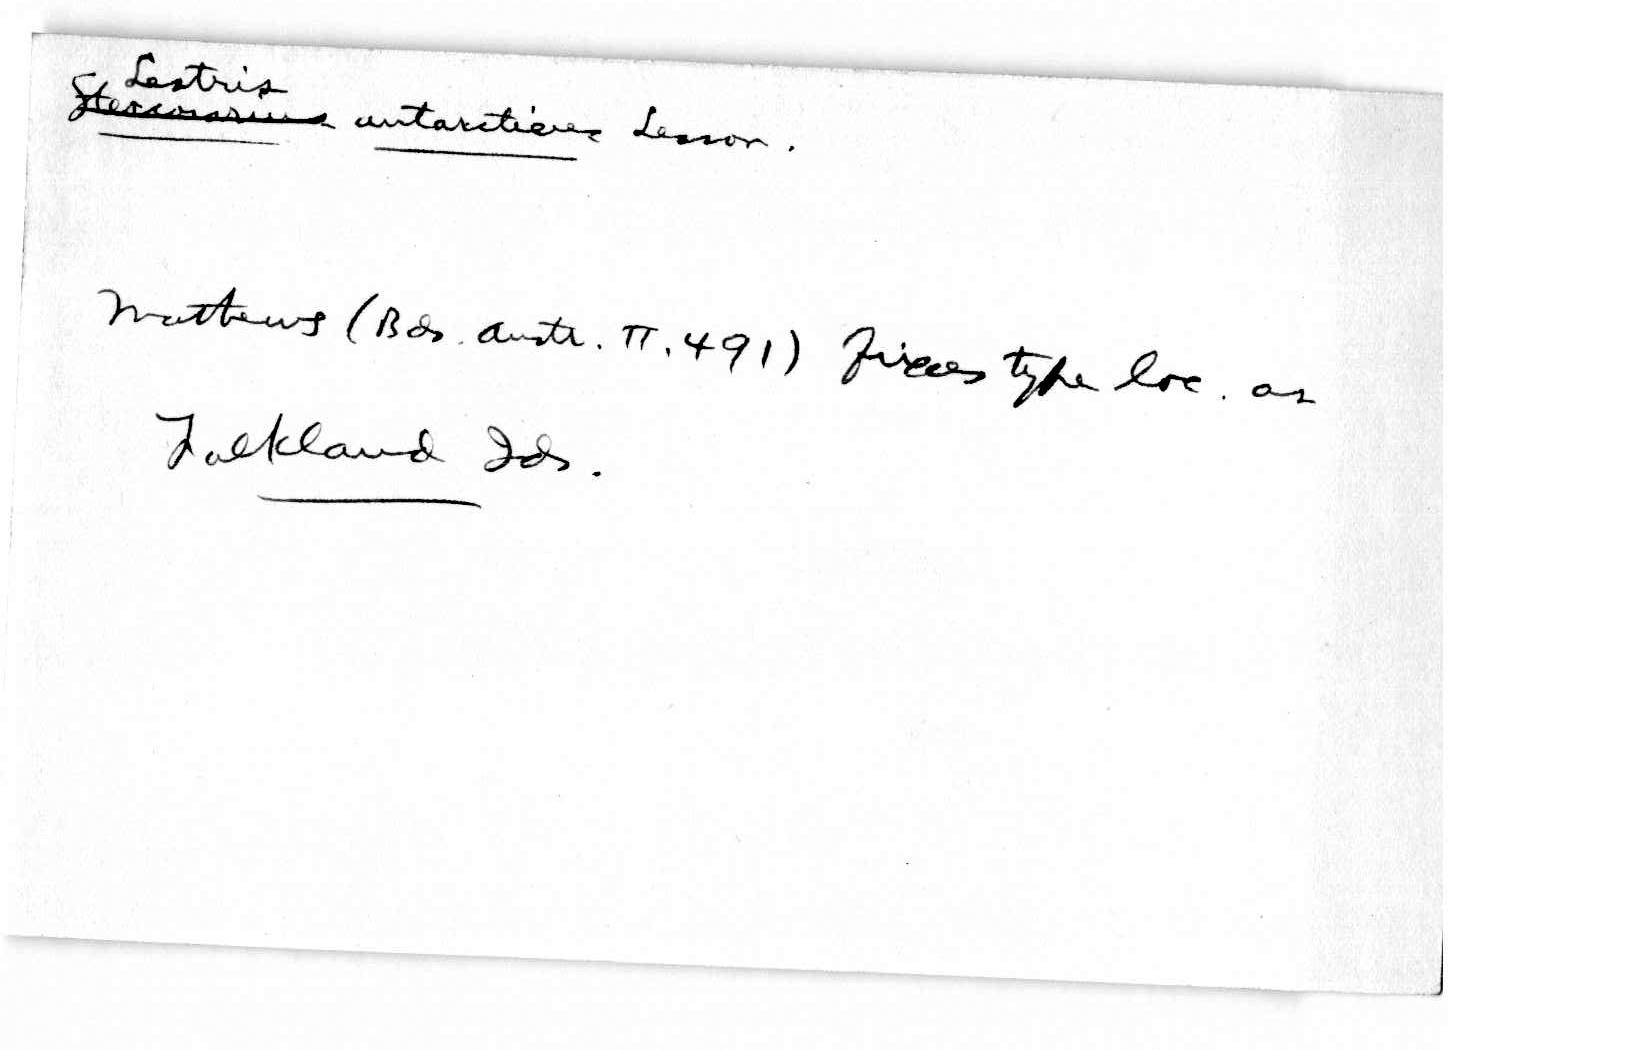 Lestris
Stercorarius antarcticus Lesson.
Mathews (Bds. Austr. II. 491) fixes type loc. as
Falkland Ids.